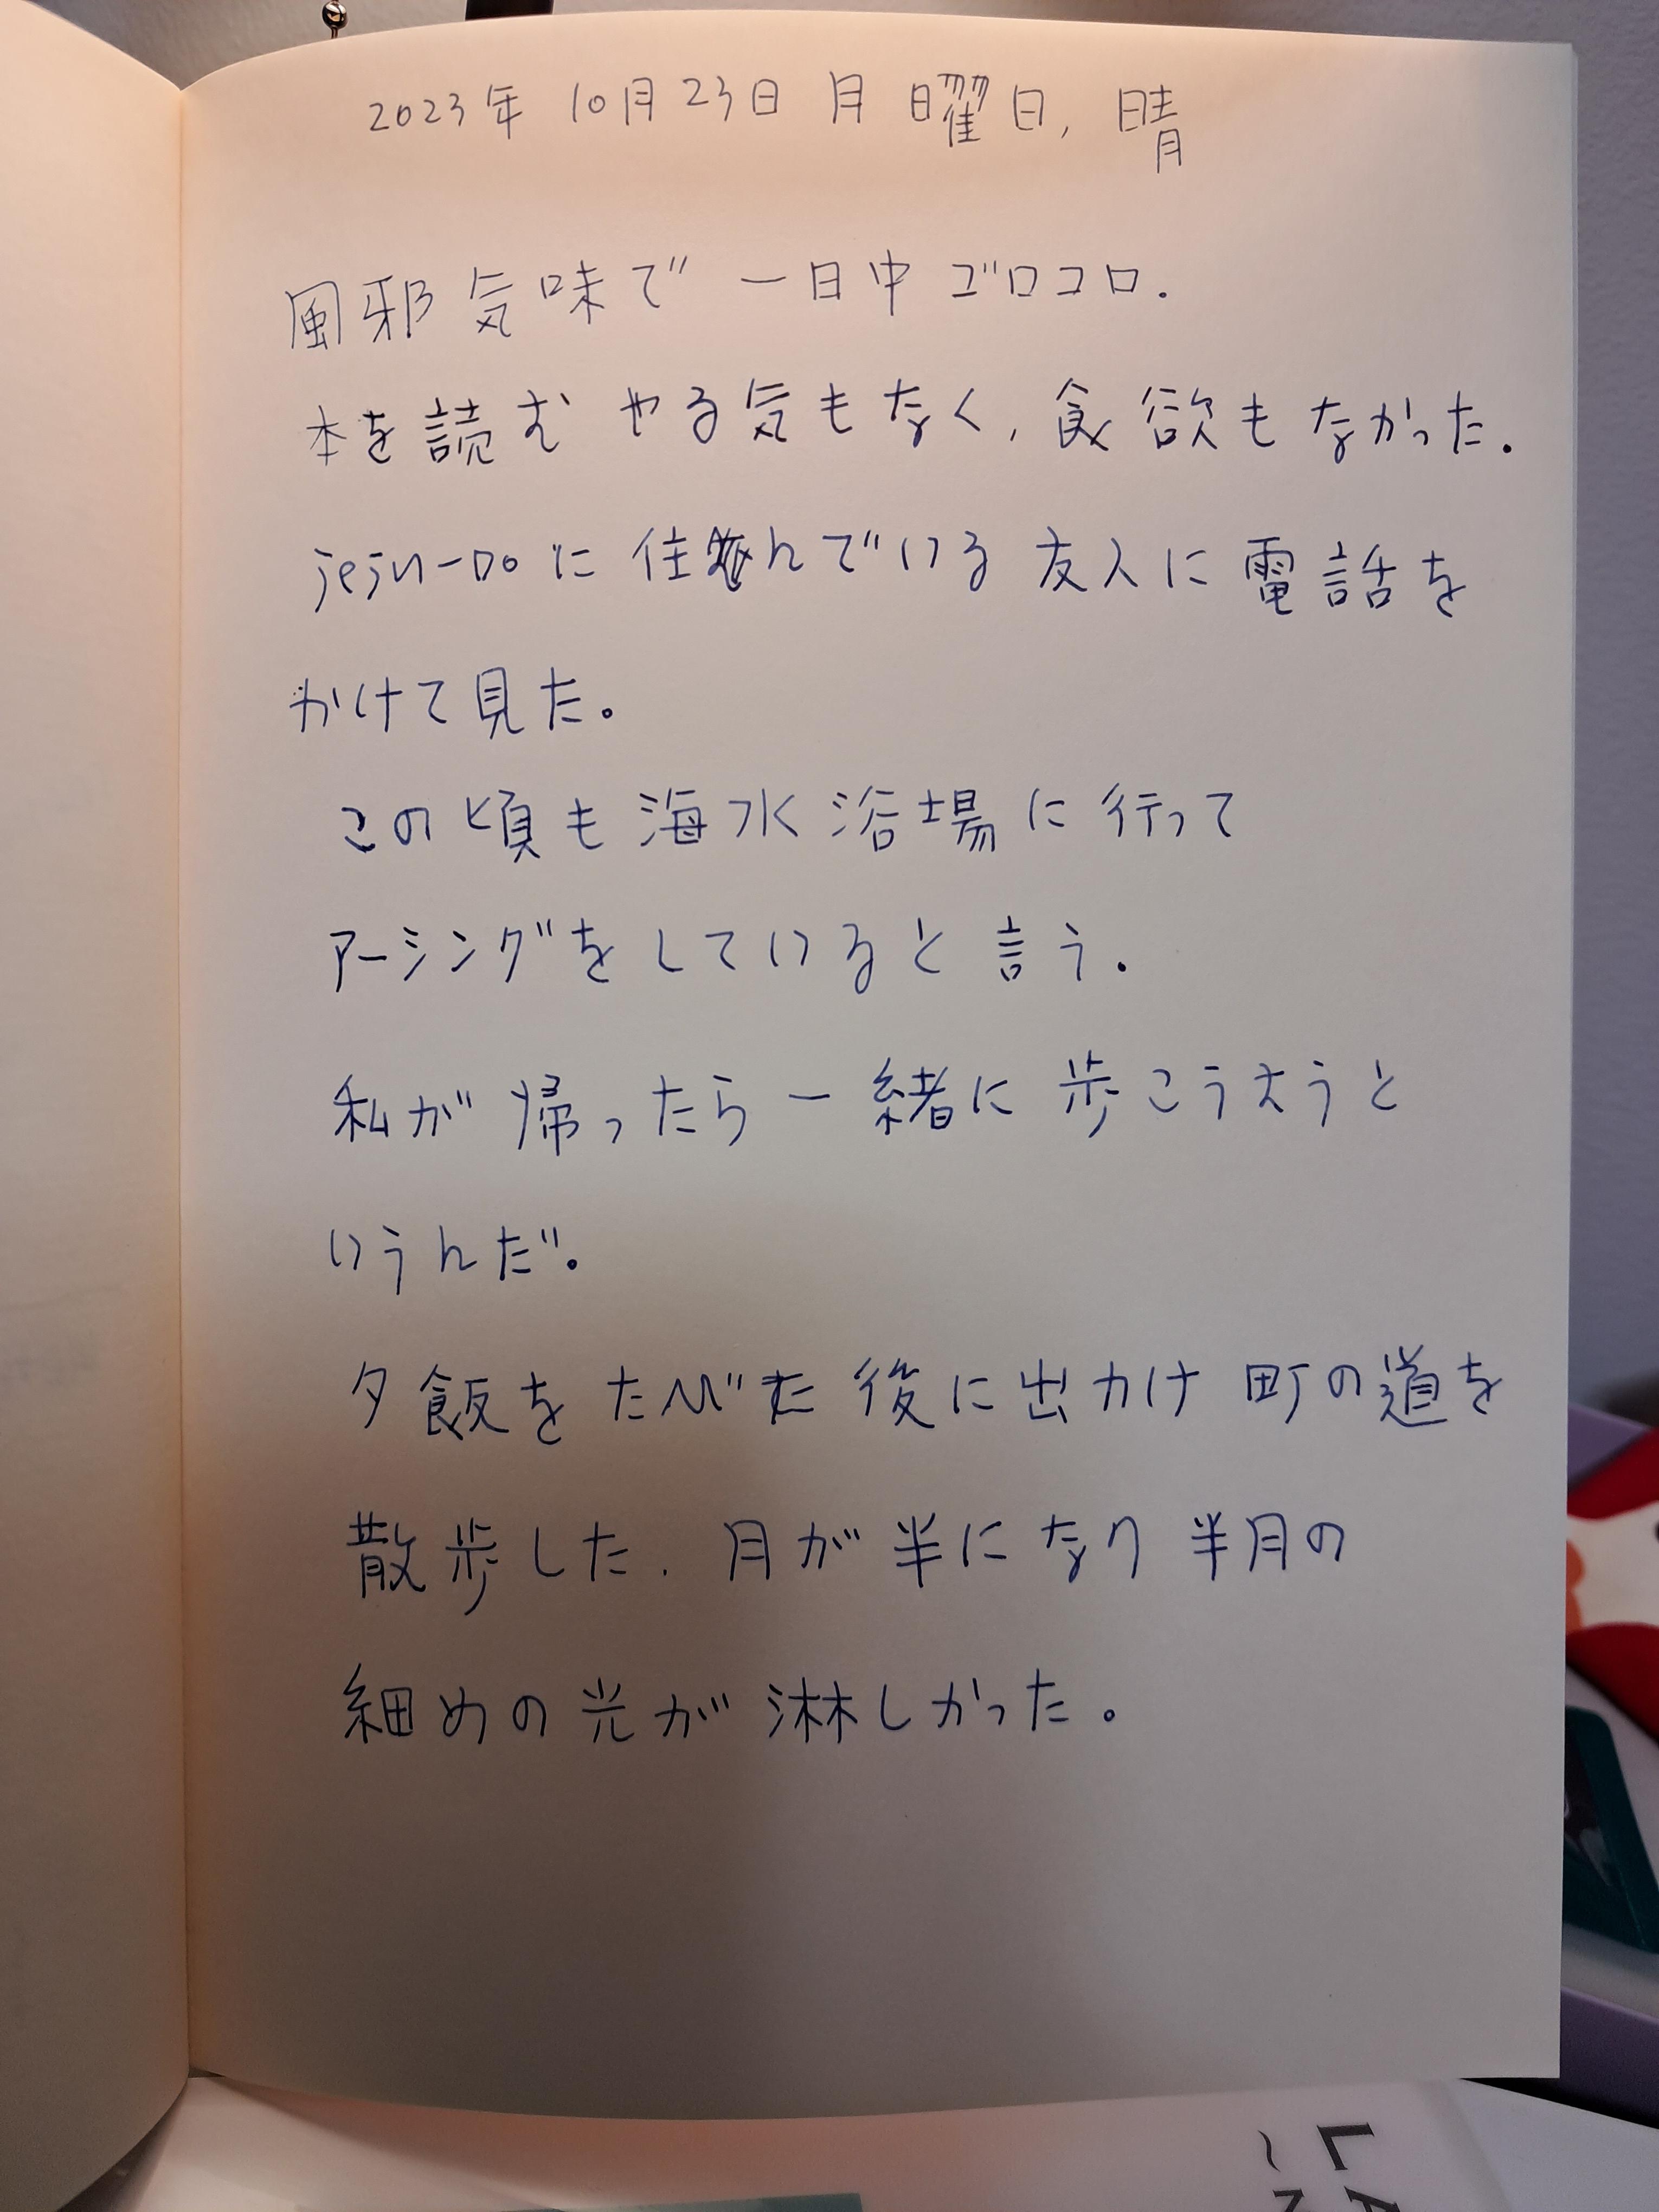 2023年 10月23日 月曜日, 晴
風邪気味で 一日中 ゴロコロ.
本を読む やる気もなく, 食欲もなかった.
jeju-Doに 住んでいる 友人に 電話を
かけて見た。
この頃も 海水浴場に 行って
アーシングをしていると 言う.
私が 帰ったら 一緒に 歩こうえうと
いうんだ。
夕飯を たべた 後に出カけ 町の道を
散歩した. 月が 半になり 半月の
細めの 光が 淋しかった。
L